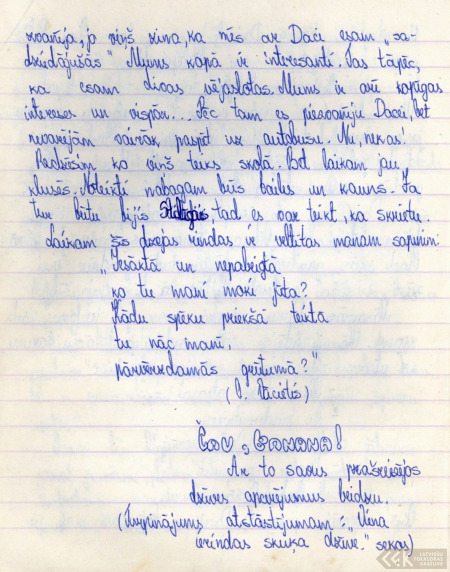 zvanīja, jo viņš zina, ka mēs ar Daci esam „sa-
dziedājušās" Mums kopā ir interesanti. Tas tāpēc,
ka esam divas vējaslotas. Mums ir arī kopīgas
intereses un vispār... Pēc tam es piezvanīju Dacei, bet
nevarējām vairāk paspēt uz autobusu. Nu, nekas!
Redzēsim ko viņš teiks skolā. Bet laikam jau
klusēs. Noteikti nabagam būs bailes un kauns. Ja
tur būtu bijis tad es var teikt, ka skrietu.
Laikam šīs dzejas rindas ir veltītas manam sapnim:
„Iesāktā un nepabeigtā
ko tu manī moki jūta?
Kādu spēku priekšā teikta
tu nāc manī,
pārvērzdamās grūtumā?"
(O. Vācietis)
Čau, !
Ar to savus prašreizējos
dzīves apcerējumus beidzu.
(Turpinājums atstāstījumam: „Viena
ierindas skuķa dzīve." sekos)
LATVIEŠU
FOLKLORAS
KRĀTUVE